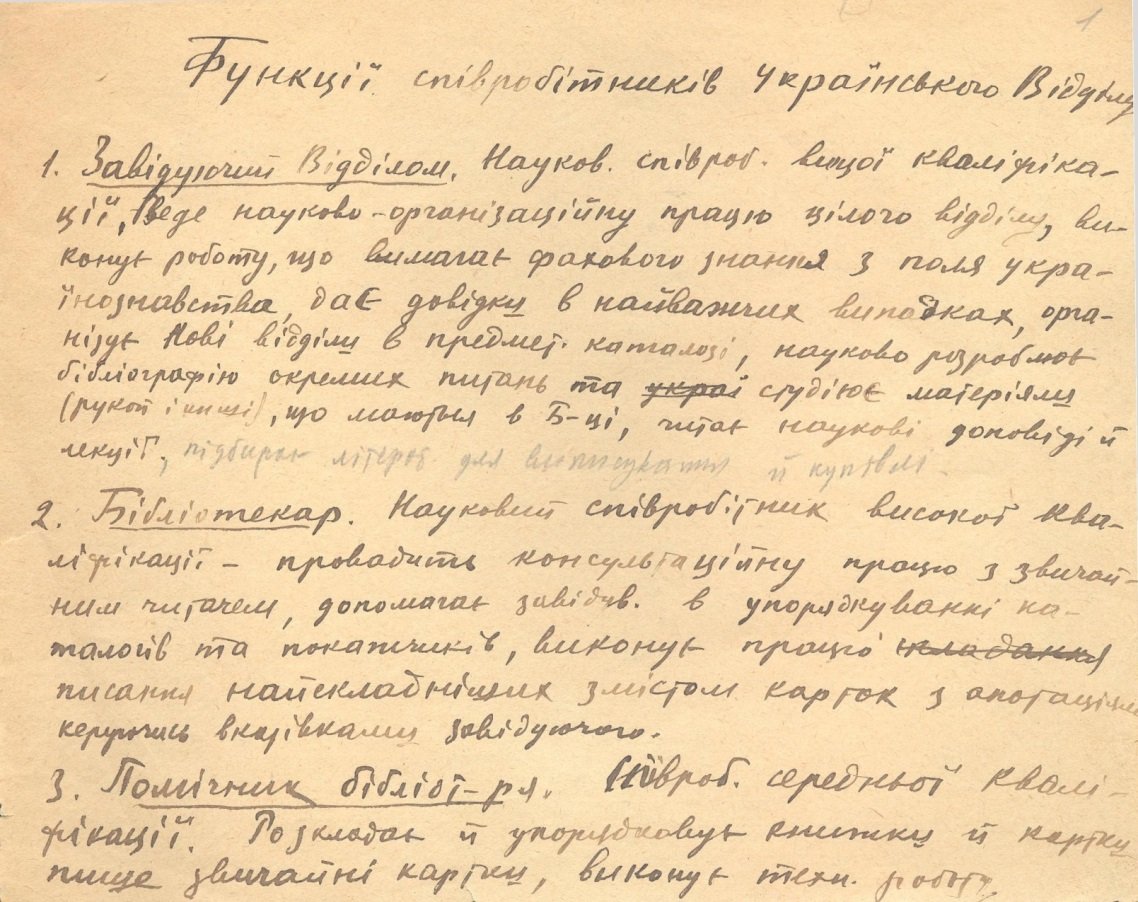 1
Функції співробітників Українського Відділу
1. Завідуючий Відділом. Науков. співроб. вищої кваліфіка-
ції, Веде науково-організаційну працю цілого відділу, ви-
конує роботу, що вимагає фахового знання з поля укра-
їнознавства, дає довідки в найважчих випадках, орга-
нізує нові відділи в предмет. каталозі, науково розроблює
бібліографію окремих питань та украї студіює матеріяли
(рукоп і книжі), що маються в Б-ці, читає наукові доповіді й
лекції, підбирає літерат. для виписування й купівлі.
2. Бібліотекар. Науковий співробітник високої ква-
ліфікації – провадить консультаційну працю з звичай-
ним читачем, допомагає завідув. в упорядкуванні ка-
талогів та покажчиків, виконує працю складання
писання найскладніших змістом карток з анотаціями
керуючись вказівками завідуючого.
3. Помічник бібліот-ря. Співроб. середньої квалі-
фікації. Розкладає й упорядковує книжки й картки
пише звичайні картки, виконує техн. роботу